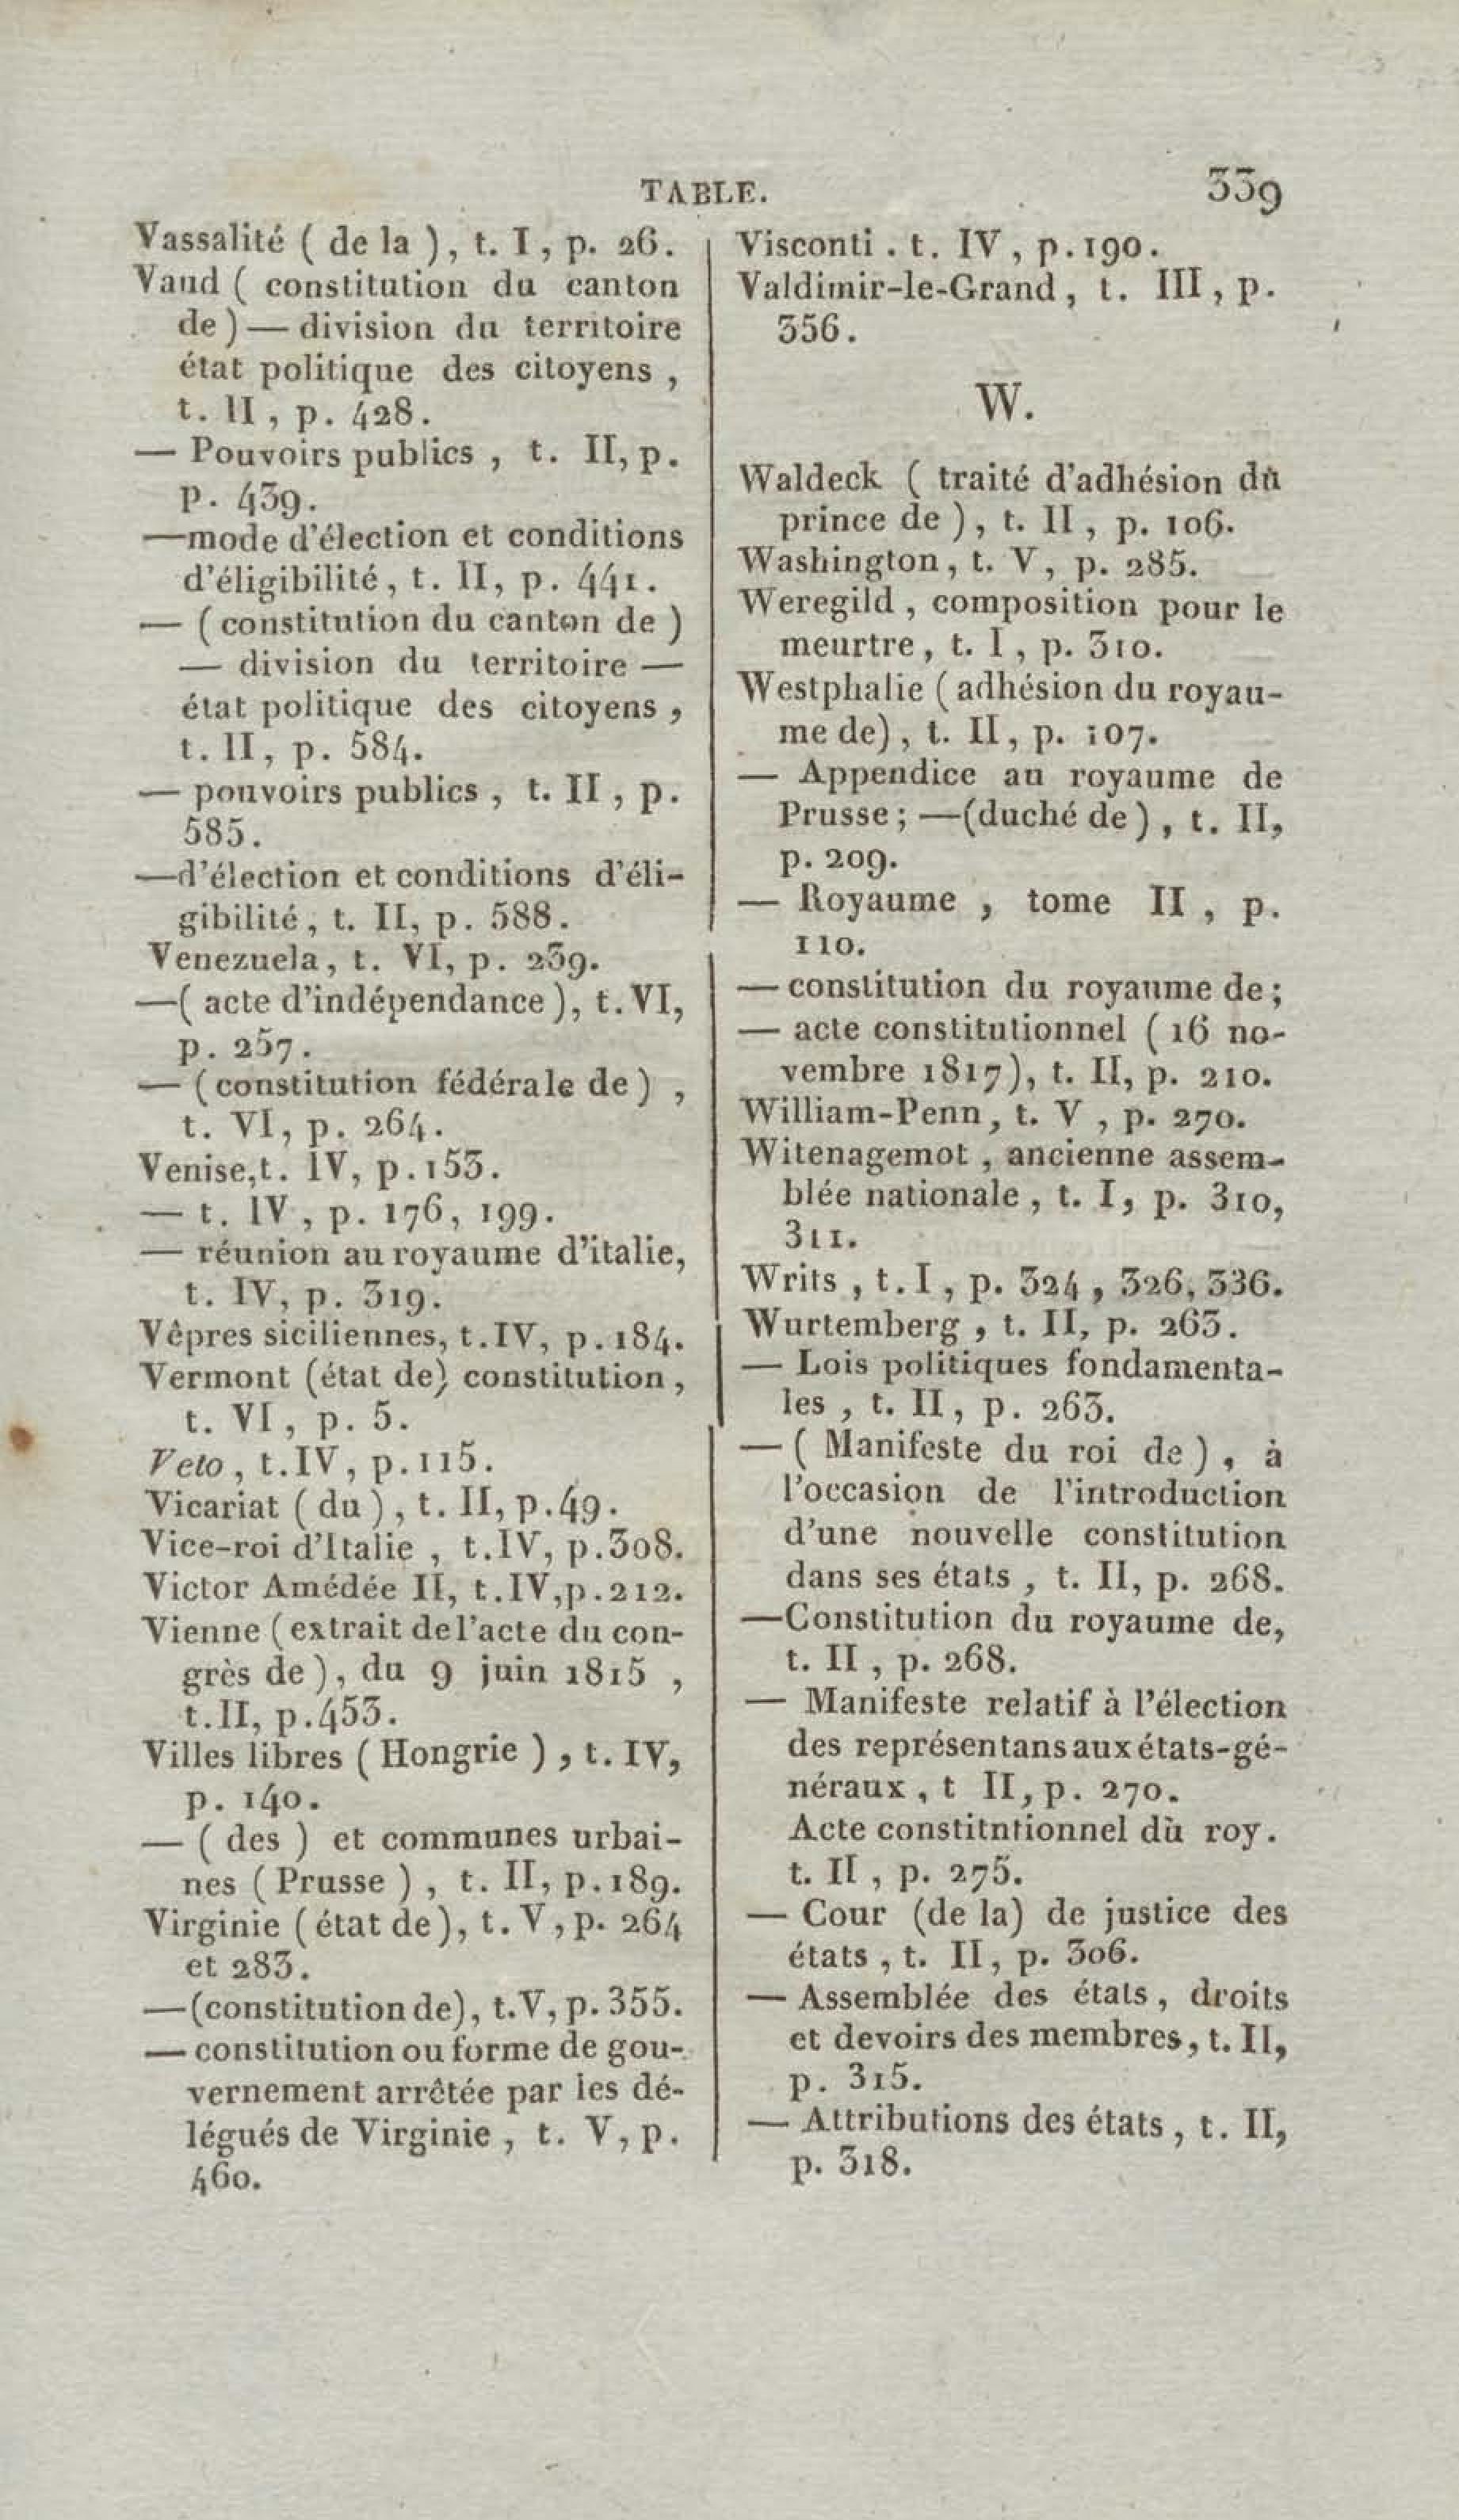 TABLE. 339
Vassalité ( de la ), t. I, p. 26.
Vaud ( constitution du canton
de ) — division du territoire
état politique des citoyens ,
t. II , p. 428.
— Pouvoirs publics , t. II, p.
p. 439.
—mode d'élection et conditions
d'éligibilité, t. II, p. 441.
— ( constitution du canton de )
— division du territoire —
état politique des citoyens ,
t. II, p. 584.
— pouvoirs publics , t. II , p.
585.
—d'élection et conditions d'éli-
gibilité, t. II, p. 588.
Venezuela, t. VI, p. 239.
—( acte d'indépendance ), t. VI,
p. 257.
— ( constitution fédérale de ) ,
t. VI, p. 264.
Venise,t. IV, p. 153.
— t. IV , p. 176, 199.
— réunion au royaume d'italie,
t. IV, p. 319.
Vêpres siciliennes, t. IV, p. 184.
Vermont (état de) constitution ,
t. VI, p. 5.
Veto , t. IV, p. 115.
Vicariat ( du ) , t. II, p. 49.
Vice-roi d'Italie , t. IV, p. 308.
Victor Amédée II, t. IV,p. 212.
Vienne ( extrait de l'acte du con-
grès de ), du 9 juin 1815 ,
t. II, p. 453.
Villes libres ( Hongrie ) , t. IV,
p. 140.
— ( des ) et communes urbai-
nes ( Prusse ) , t. II, p. 189.
Virginie ( état de), t. V , p. 264
et 283.
—(constitution de), t. V, p. 355.
— constitution ou forme de gou-
vernement arrêtée par les dé-
légués de Virginie , t. V, p.
460.
Visconti . t. IV , p. 190.
Valdimir-le-Grand , t. III , p.
356.
W.
Waldeck ( traité d'adhésion dù
prince de ) , t. II , p. 106.
Washington, t. V, p. 285.
Weregild , composition pour le
meurtre, t. I , p. 310.
Westphalie ( adhésion du royau-
me de) , t. II, p. 107.
— Appendice au royaume de
Prusse ; —(duché de ) , t. II,
p. 209.
— Royaume , tome II , p.
110.
— constitution du royaume de ;
— acte constitutionnel ( 16 no-
vembre 1817), t. II, p. 210.
William-Penn, t. V , p. 270.
Witenagemot , ancienne assem-
blée nationale , t. I, p. 310,
311.
Writs , t. I , p. 324 , 326, 336.
Wurtemberg , t. II, p. 263.
— Lois politiques fondamenta-
les , t. II, p. 263.
— ( Manifeste du roi de ) , à
l'occasion de l'introduction
d'une nouvelle constitution
dans ses états , t. II, p. 268.
—Constitution du royaume de,
t. II , p. 268.
— Manifeste relatif à l'élection
des représentans aux états-gé-
néraux , t II, p. 270.
Acte constitntionnel dù roy.
t. II , p. 275.
— Cour (de la) de justice des
états , t. II, p. 306.
— Assemblée des états , droits
et devoirs des membres, t. II,
p. 315.
— Attributions des états , t. II,
p. 318.